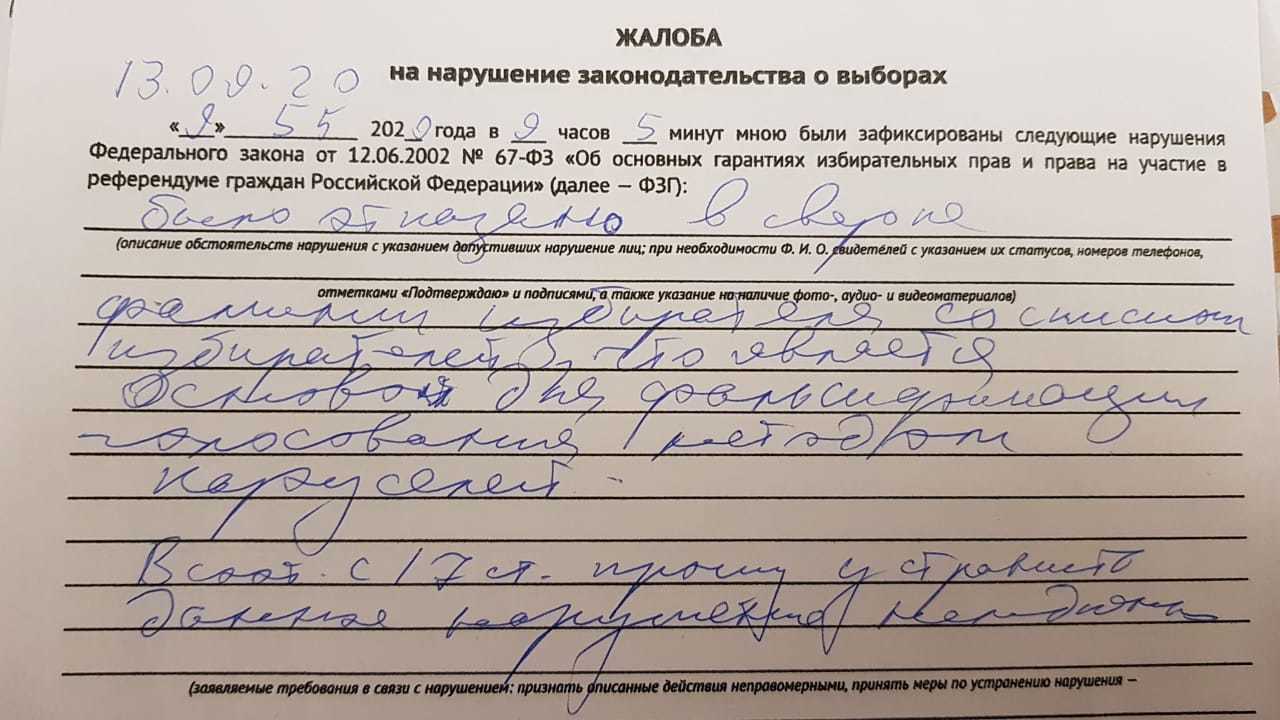 ЖАЛОБА
на нарушение законодательства о выборах
13.09.20
«9» 55 2020 года в 9 часов 5 минут мною были зафиксированы следующие нарушения
Федерального закона от 12.06.2002 № 67-ФЗ «Об основных гарантиях избирательных прав и права на участие в
референдуме граждан Российской Федерации» (далее — ФЗГ):
было отказано в сверке
(описание обстоятельств нарушения с указанием допустивших нарушение лиц; при необходимости Ф. И. О. свидетелей с указанием их статусов, номеров телефонов,
отметками «Подтверждаю» и подписями, а также указание на наличие фото-, аудио- и видеоматериалов)
фамилии избирателя со списком
избирателей, что является
основой для фальсификации
голосования методом
каруселей.
В соот. с 17 ст. прошу устранить
данное нарушение
(заявляемые требования в связи с нарушением: признать описанные действия неправомерными, принять меры по устранению нарушения —